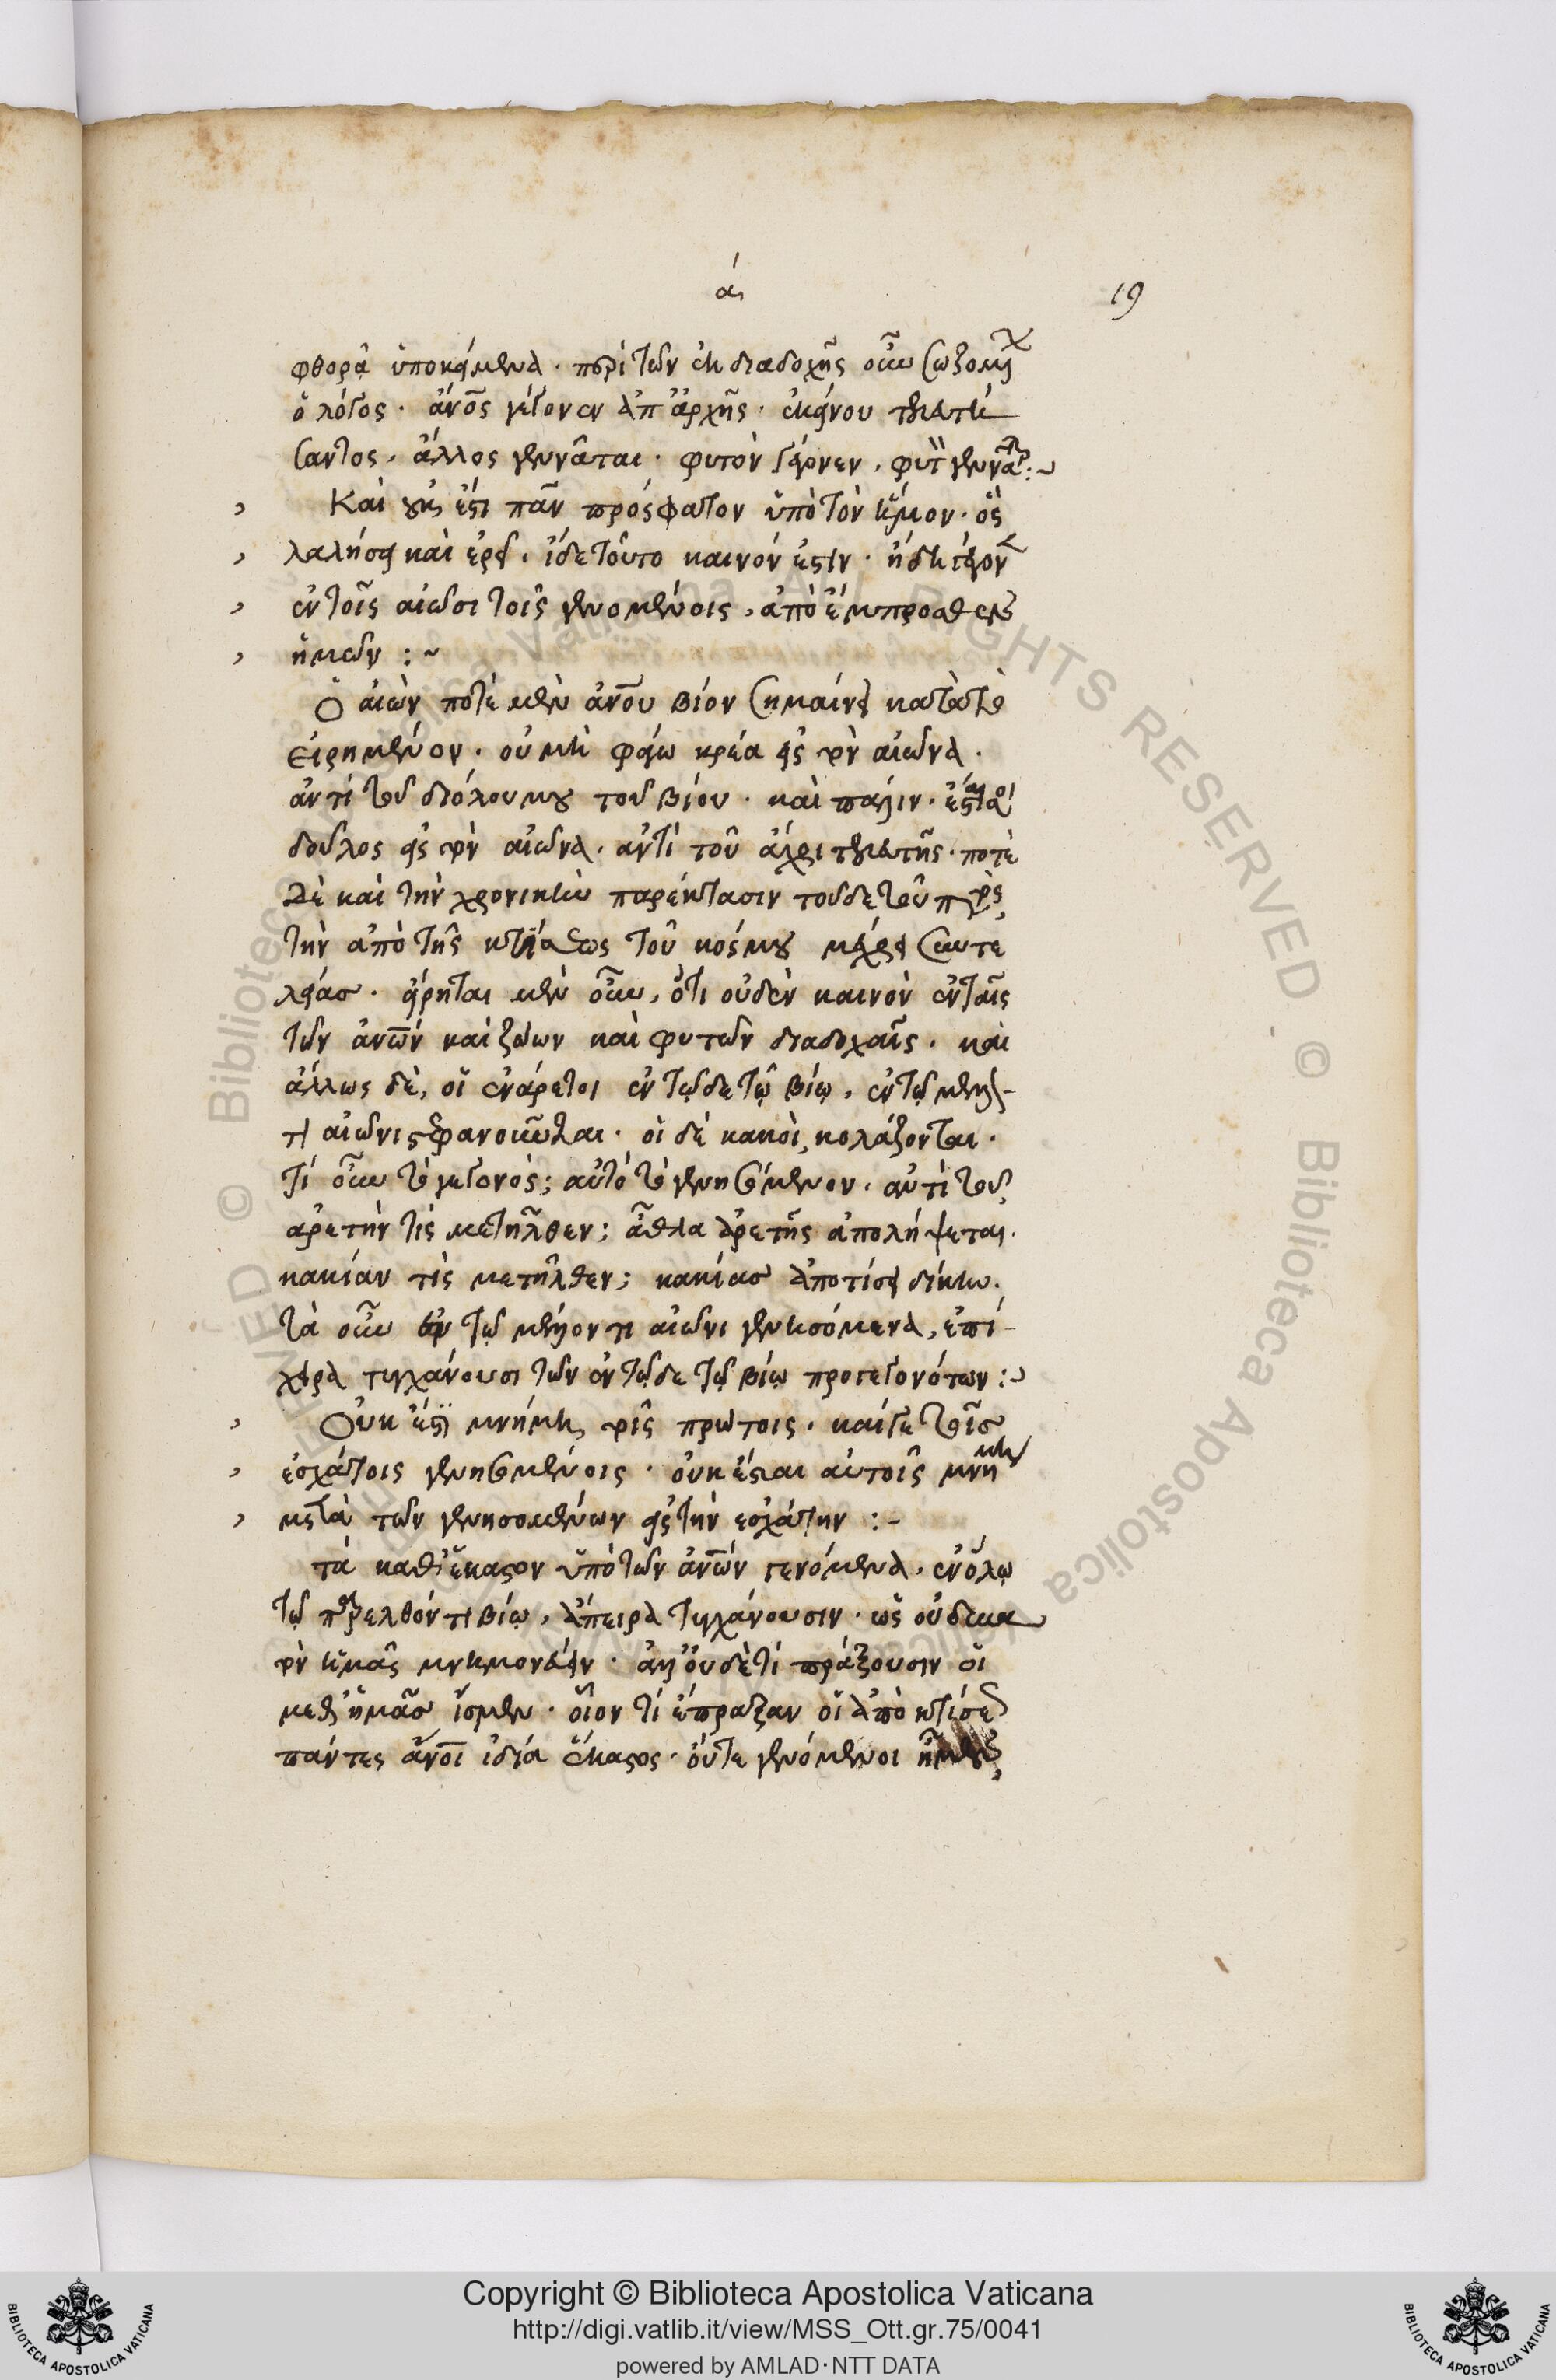 ά
19
φθορᾷ ὑποκείμενα · περὶ τῶν ἐκ διαδοχῆς οὖν σωζομένων
ὁ λόγος · ἄνος γέγονεν ἀπ ἀρχῆς · ἐκείνου τελευτή
σαντος, ἄλλος γεννᾶται · φυτὸν γέγονεν, φυτὸν γεννᾶται :~
Καὶ οὐκ ἔστι πᾶν πρόσφατον ὑπὸ τὸν ἥλιον · ὃς
λαλήσει καὶ ἐρεῖ · ἴδε τοῦτο καινόν ἐστιν · ἤδη γέγονεν
ἐν τοῖς αἰῶσι τοῖς γενομένοις, ἀπὸ ἔμπροσθεν
ἡμῶν :~
Ὁ αἰὼν ποτὲ μὲν ἀνου βίον σημαίνει κατὰ τὸ
εἰρημένον · οὐ μὴ φάγω κρέα εἰς τὸν αἰῶνα ·
ἀντὶ τοῦ διόλου μου τοῦ βίου · καὶ πάλιν · ἔσται σοι
δοῦλος εἰς τὸν αἰῶνα · ἀντὶ τοῦ ἄχρι τελευτῆς · ποτὲ
δὲ καὶ τὴν χρονικὴν παρέκτασιν τοῦδε τοῦ παντός,
τὴν ἀπὸ τῆς κτίσεως τοῦ κόσμου μέχρι συντε
λείας · εἴρηται μὲν οὖν, ὅτι οὐδὲν καινὸν ἐν ταῖς
τῶν ἀνων καὶ ζώων καὶ φυτῶν διαδοχαῖς · καὶ
ἄλλως δὲ, οἱ ἐνάρετοι ἐν τῷδε τῷ βίῳ, ἐν τῷ μέλλον
τι αἰῶνι στεφανοῦνται · οἱ δὲ κακοὶ, κολάζονται ·
τί οὖν τὸ γεγονός; αὐτὸ τὸ γενησόμενον · ἀντὶ τοῦ,
ἀρετήν τις μετῆλθεν; ἆθλα ἀρετῆς ἀπολήψεται ·
κακίαν τὶς μετῆλθεν; κακίας ἀποτίσει δίκην ·
τὰ οὖν ἐν τῷ μέλλοντι αἰῶνι γενησόμενα, ἐπί
χειρα τυγχάνουσι τῶν ἐν τῷδε τῷ βίῳ προγεγονότων :~
Οὐκ ἔστι μνήμη τοῖς πρώτοις · καίγε τοῖς
ἐσχάτοις γενησομένοις · οὐκ ἔσται αὐτοῖς μνήμη
μετὰ τῶν γενησομένων εἰς τὴν ἐσχάτην :~
τὰ καθ ἕκαστον ὑπὸ τῶν ἀνων γενόμενα, ἐν ὅλῳ
τῷ παρελθόντι βίῳ, ἄπειρα τυγχάνουσιν · ὡς οὐ δυνα
τὸν ἡμᾶς μνημονεύειν · ἀλλ οὐδὲ τί πράξουσιν οἱ
μεθ ἡμᾶς ἴσμεν · οἷον τί ἔπραξαν οἱ ἀπὸ κτίσεως
πάντες ἄνοι ἰδία ἕκαστος · οὔτε γενόμενοι
Copyright © Biblioteca Apostolica Vaticana
http://digi.vatlib.it/view/MSS_Ott.gr.75/0041
powered by AMLAD·NTT DATA